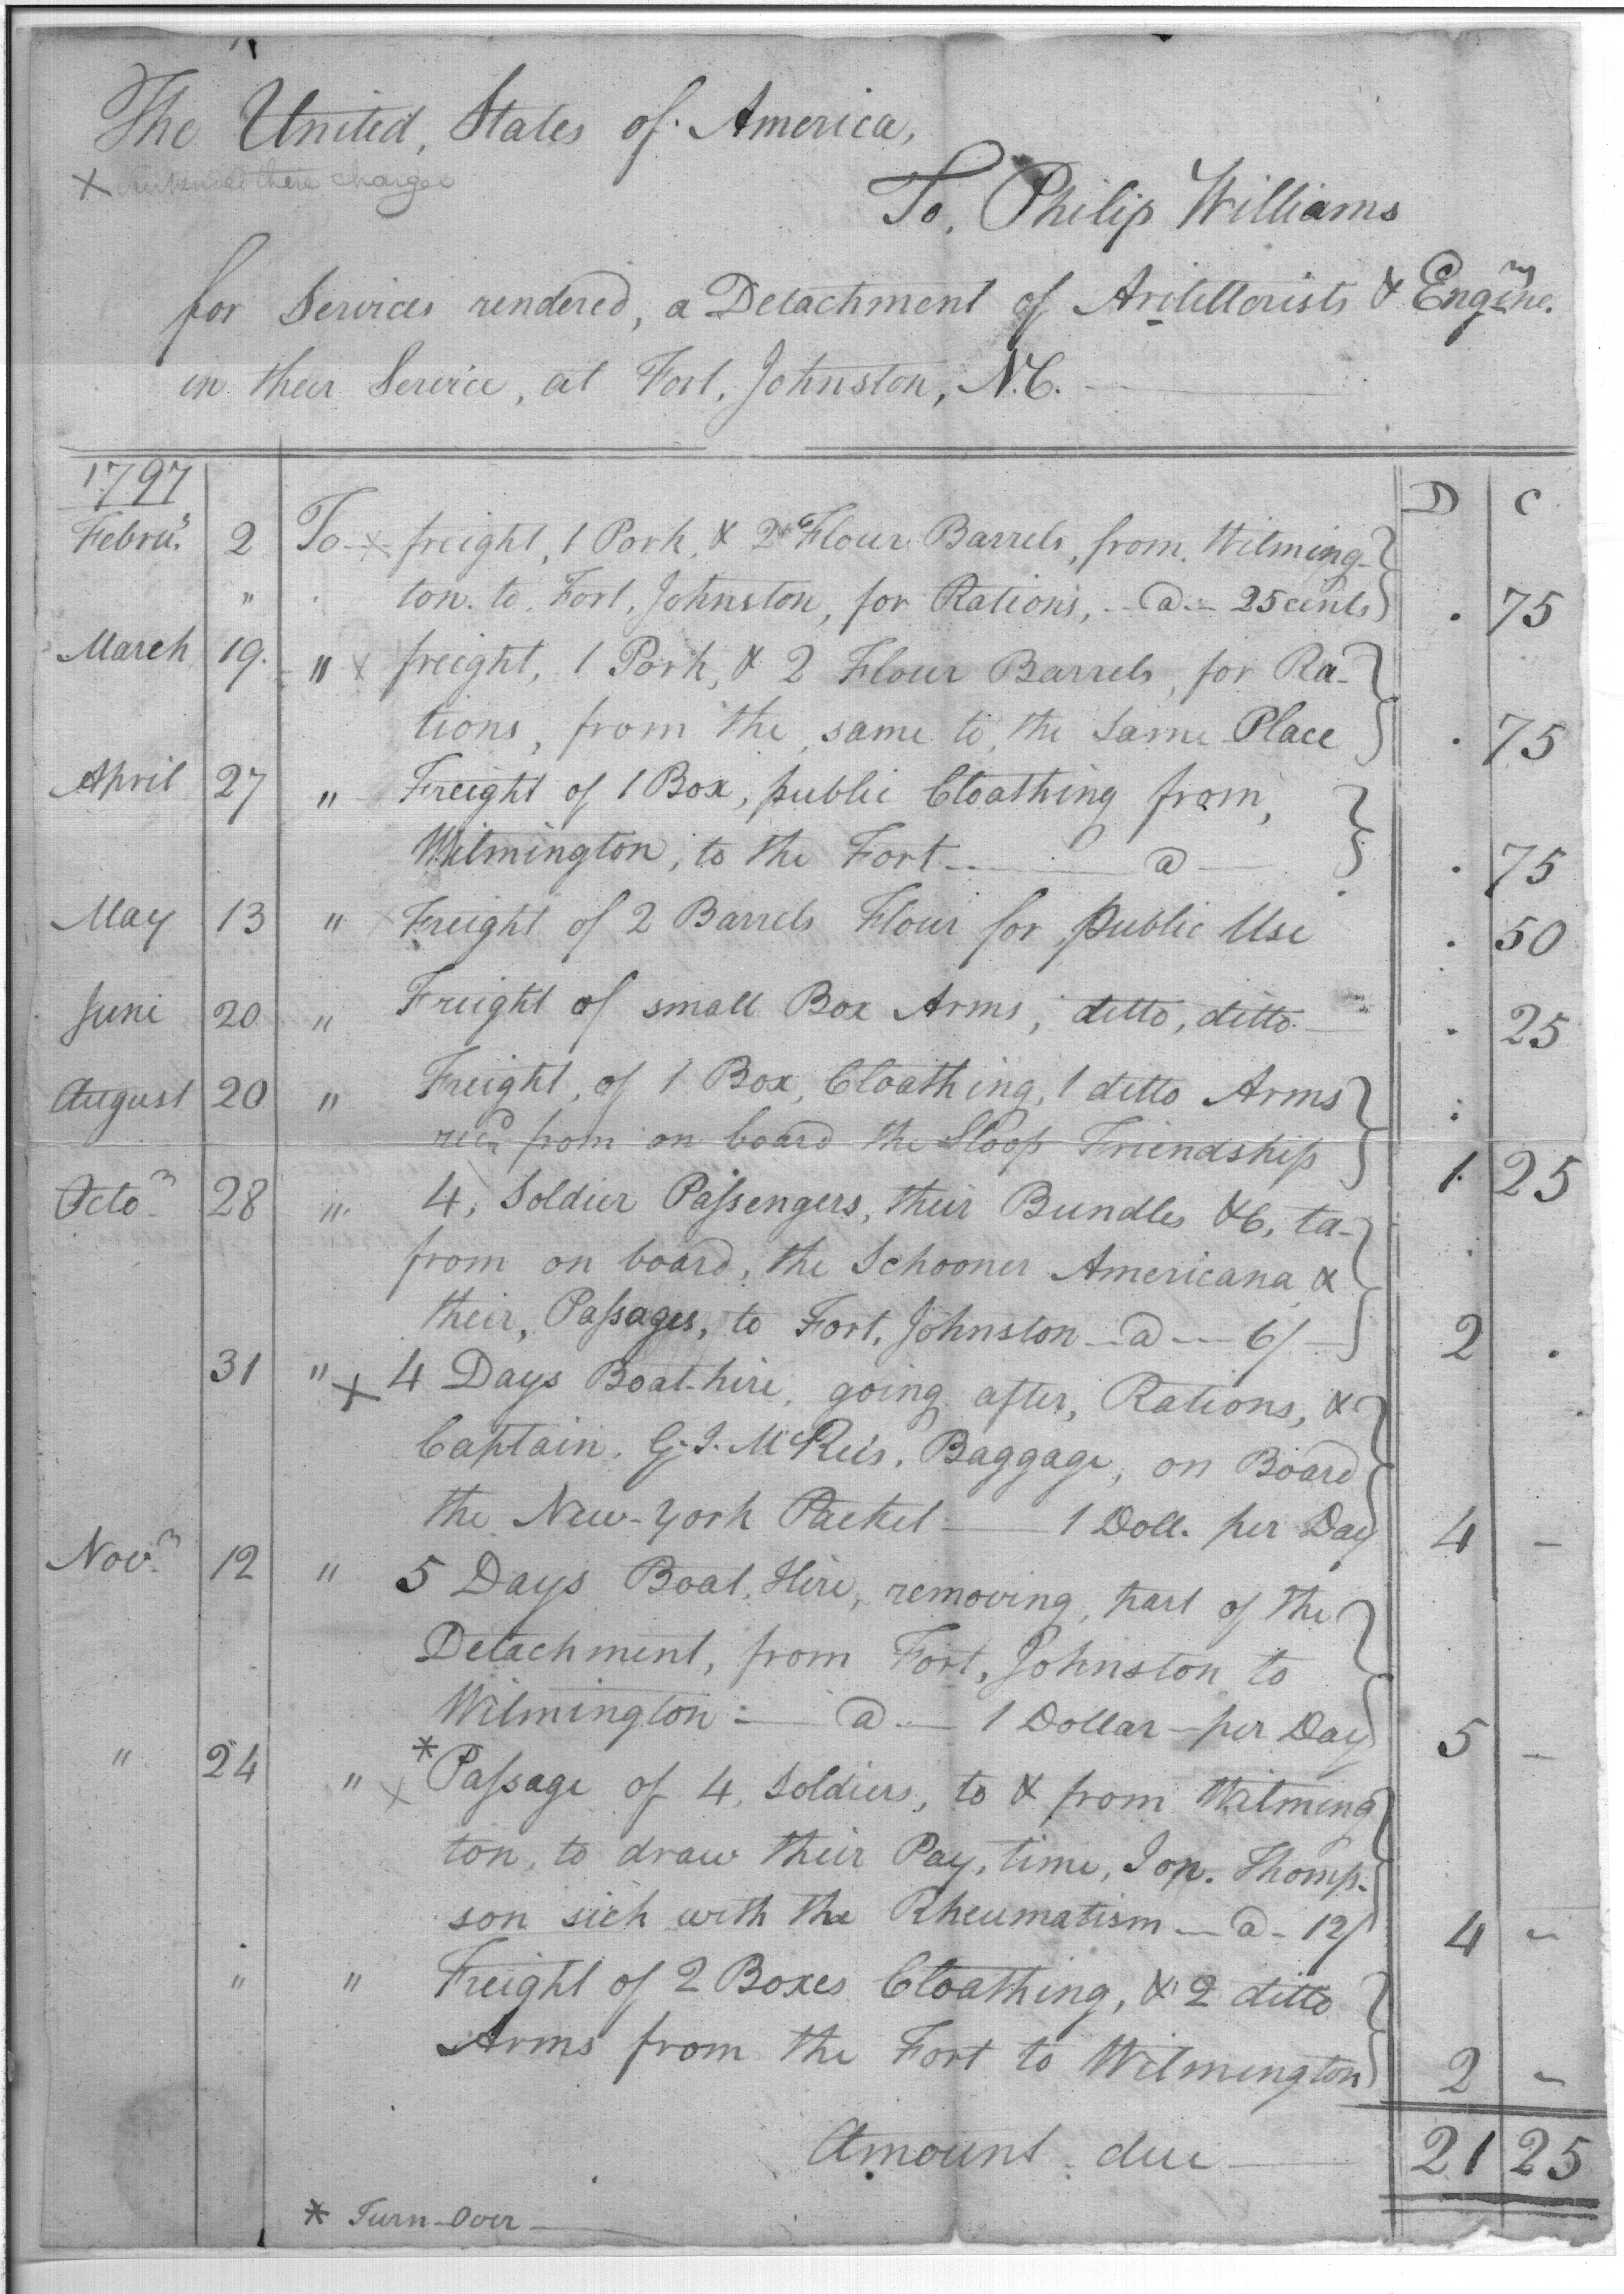 The United, States of America,
X these charges
To, Philip Williams
for Services rendered, a Detachment of Artillerists & Engine.rs
in their Service, at Fort, Johnston, N.C.
1797
D C
Febru.y 2 To x freight, 1 Pork, & 2 Flour Barrels, from, Wilming-
" ton. to. Fort, Johnston, for Rations, - @ - 25 cents . 75
March 19. " x freight, 1 Pork, & 2 Flour Barrels, for Ra-
tions, from the, same to, the same Place . 75
April 27 " Freight of 1 Box, public Cloathing from,
Wilmington, to the Fort — @ — . 75
May 13 " x Freight of 2 Barrels Flour for public Use . 50
June 20 " Freight of small Box Arms, ditto, ditto — . 25
August 20 " Freight, of 1 Box, Cloathing, 1 ditto Arms
rec.d from on board the Sloop Friendship 1. 25
Octo.r 28 " 4, Soldier Passengers, their Bundles &C, ta-
from on board, the Schooner Americana &
their, Passages, to Fort, Johnston - @ - 6/ 2 .
31 " X 4 Days Boat-hire, going after, Rations, &
Captain, G. J. McRee's, Baggage, on Board
the New-York Packet — 1 Doll. per Day 4 -
Nov.r 12 " 5 Days Boat, Hire, removing, part of the
Detachment, from Fort, Johnston to
Wilmington: — @ — 1 Dollar - per Day 5 -
" 24 " x * Passage of 4, Soldiers, to & from Wilming
ton, to draw their Pay, time, Jon. Thomp-
son sick with the Rheumatism — @ - 12/ 4 -
" " Freight of 2 Boxes Cloathing, & 2 ditto
Arms from the Fort to Wilmington 2 -
Amount due — 21 25
* Turn-Over —